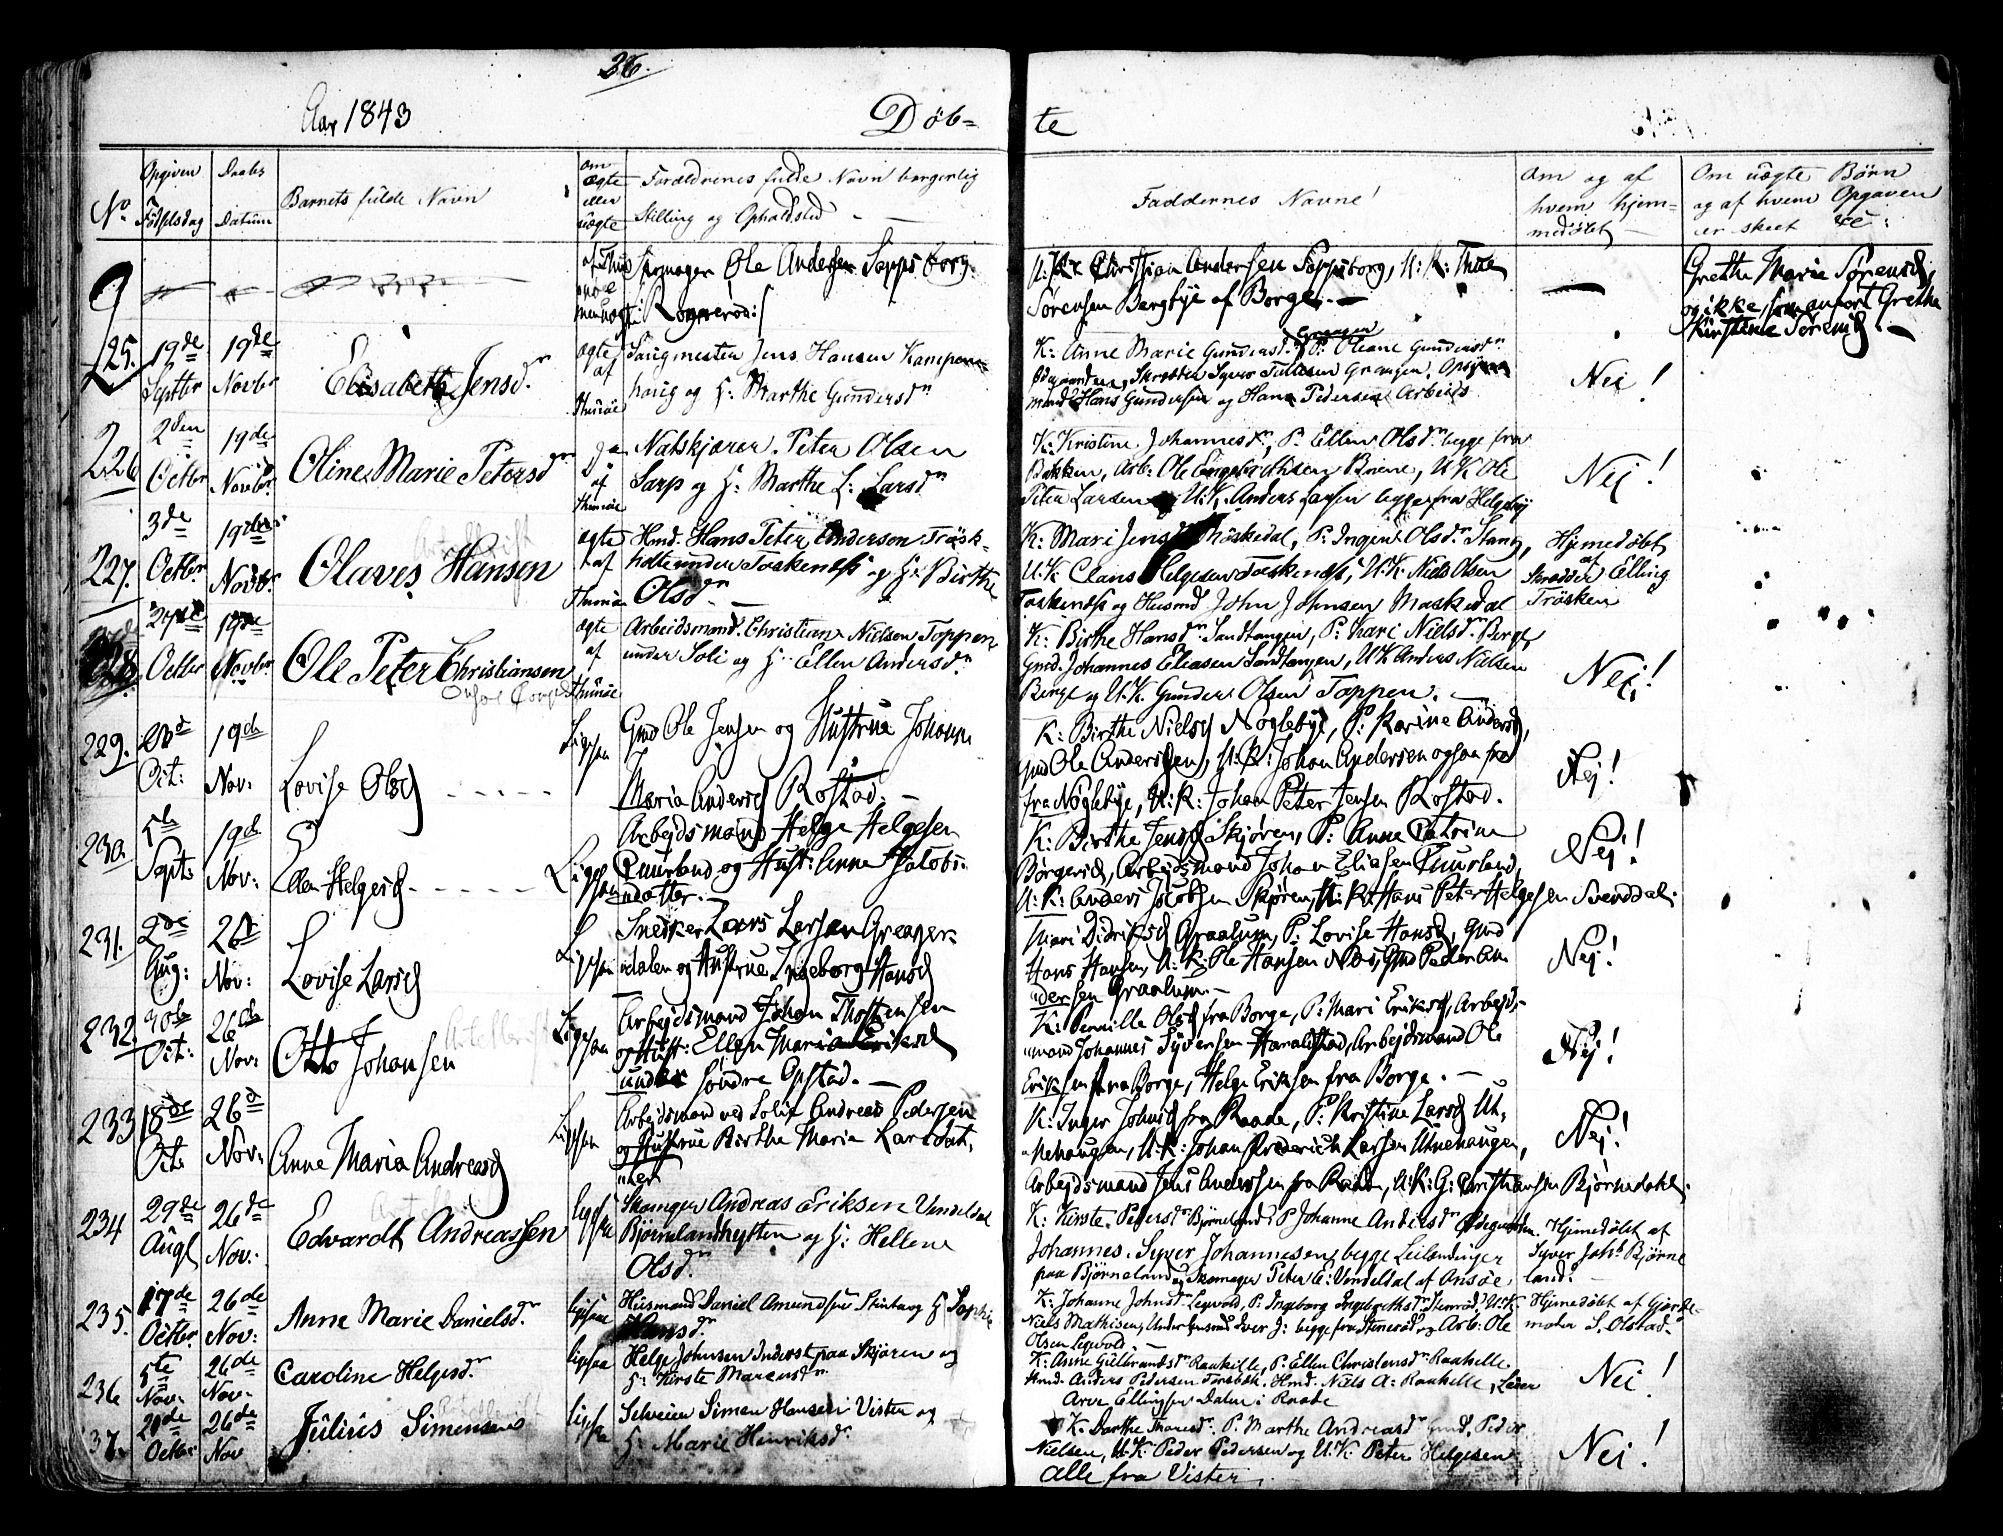 26.
Aar 1843
Døb-
te
No
Opgiven Fødselsdag
Daabs Datum
Barnets fulde Navn
om ægte eller uægte
Forældrenes fulde Navn borgerlig
Stilling og Opholdsted
Faddernes Navne
Om og af
hvem hjem-
medøbt
Om uægte Børn
og af hvem Opgaven
er skeet
9
Skomager Ole Andersen Sapsborg
Christian Andersen Sapsborg, U: K:
Sørensen Bergbye af Borge. —
Grethe Marie Sørensd,
og ikke som anført Grethe
Kirstine Sørensd. —
225. 19de Septbr 19de Novbr Elisabeth Jensdr ægte af Thunøe
Saugmester Jens Hansen Kampen-
haug og H: Marthe Gundersdr
K: Anne Marie Gundersdr P: Oleane Gundersdr
Ødegaarden, Skrædder Syver
mand Hans Gundersen og Hans Pedersen Arbeids
Nei!
226 2den Octbr 19de Novbr. Oline Marie Petersdr af Thunøe
Natskjører Peter Olsen
Sarp og H: Marthe L: Larsdr
K: Kristine Johannesdr, P: Ellen Olsdr begge fra
Bakken, Arb: Ole Engebrethsen Boiene, U.K. Ole
Peter Larsen og U.K. Anders Larsen begge fra Helgeby
Nej!
227. 3de Octbr 19de Novbr. Olaves Hansen ægte af Thunøe
Hmd. Hans Peter Andersen Trøsk-
under Torkenæss og H: Birthe
Olsdr. —
K: Mari Jensdr Møskedal, P: Ingeni Olsdr Stang,
U.K. Claus Helgesen Torkenæss, U.K. Niels Olsen
Torkenæss og Husmd John Johnsen Maskedal
Hjemedøbt
af
Skrædder Elling
Trøsken
228. 27de Octbr 19de Novbr Ole Peter Christiansen ægte af Thunøe
Arbeidsmand Christian Nielsen Toppen
under Soli og H: Ellen Andersdr
K: Birthe Hansdr Sandtangen, P: Kari Nielsdr Berge,
Gmd. Johannes Eliasen Sandtangen, U.K. Anders Nielsen
Berge og U.K. Gunder Olsen Toppen. —
Nei!
229. Oct: 19de Nov: Lovise Olsd
Gmd Ole Jensen og Hustrue Johanne
Maria Andersd Rostad. —
K: Birthe Nielsd Nøglebye, P: Karine Andersd,
Gmd Ole Andersen, U:K: Johan Andersen ogsaa fra
fra Nøglebye, U:K: Johan Peter Jensen Rostad.
Nej!
230. 5te Sept: 19de Nov: Ellen Helgesd Ligesaa
Arbejdsmand Helge Helgesen
Tuurland og Hust: Anne Jakobs-
datter. —
K: Birthe Jensd Skjøren, P: Anne Catrine
Børgersd, Arbejdsmand Johan Eliasen Tuurland,
U:K: Anders Jacobsen Skjøren, U:K: Hans Peter Helgesen Svenddal.
Nej!
231. 2de Aug: 26de Nov: Lovise Larsd Ligesaa
Snedker Lars Larsen Greager-
dalen og Hustrue Ingeborg Hansd
Mari Didriksd Graalum, P: Lovise Hansd, Gmd
Hans Hansen, U:K: Ole Hansen Næs, Gmd Peder An-
dersen Graalum. —
Nej!
232. 30te Oct: 26de Nov: Otto Johansen Ligesaa
Arbejdsmand Johan Thostensen
og Hust: Ellen Maria Eriksd
under Søndre Opstad. —
K: Pernille Olsd fra Borge, P: Mari Eriksd, Arbejds-
mand Johannes Syversen Haralstad, Arbejdsmand Ole
Eriksen fra Borge, Helge Eriksen fra Borge. —
Nej!
233 18de Oct: 26de Nov: Anne Maria Andreasd Ligesaa
Arbejdsmand ved Solie Andreas Pedersen
og Hustrue Birthe Maria Larsdat-
ter
K: Inger Johnsd fra Raade, P: Kristine Larsd Ut-
nehaugen, U:K: Johan Frederich Larsen Utnehaugen,
Arbejdsmand Jens Andersen fra Raade, U:K: G: Christiansen Bjørnedahl.
Nej!
234 29de Augt 26de Nov: Edvardt Andreassen ligesaa
Skomager Andreas Eriksen Vendeldal
Bjørnelandhytten og H: Hellene
Olsdr
K: Kirste Pedersdr Bjørneland, P Johanne Andersdr Ødegaarden.
Johannes. Syver Johannesen, begge Leilændinger
paa Bjørneland og Skomager Peter E: Vendeldal af Ansøe
Hjemedøbt af
Syver Johs Bjørne
land. —
235. 17de Octbr 26de Nov: Anne Marie Danielsdr ligesaa
Husmand Daniel Amundsen Stentorp H Sophie
Hansdr
K: Johanne Johnsdr Legvold, P: Ingeborg Ingebrethsdr Stenrød, U.K.
Niels Mathisen, Iver J: begge fra Stenerød og Arb: Ole
Olsen Legvold. —
Hjemedøbt af Gjorde-
moder S. Olstad.
236 5te Nov: 26de Nov: Caroline Helgesdr ligesaa
Helge Johnsen Inderst paa Skjøren og
H: Kirste Marcusdr
K: Anne Gulbrandsdr Raakille, P: Ellen Christensdr Raakelle
Hmd. Anders Pedersen Torsbæk, Hmd. Niels A: Raakelle,
Arve Ellingsen Dalen i Raade
Nei!
237. Octbr 26de Nov Julius Simensen ligesaa
Selveier Simen Hansen Vister og
H: Marie Henriksdr
K. Dorthe P: Marthe Andreasdr Gmd. Peder
Nielsen, U.K. Peder Pedersen og U.K. Peter Helgesen
alle fra Vister.
Nei!